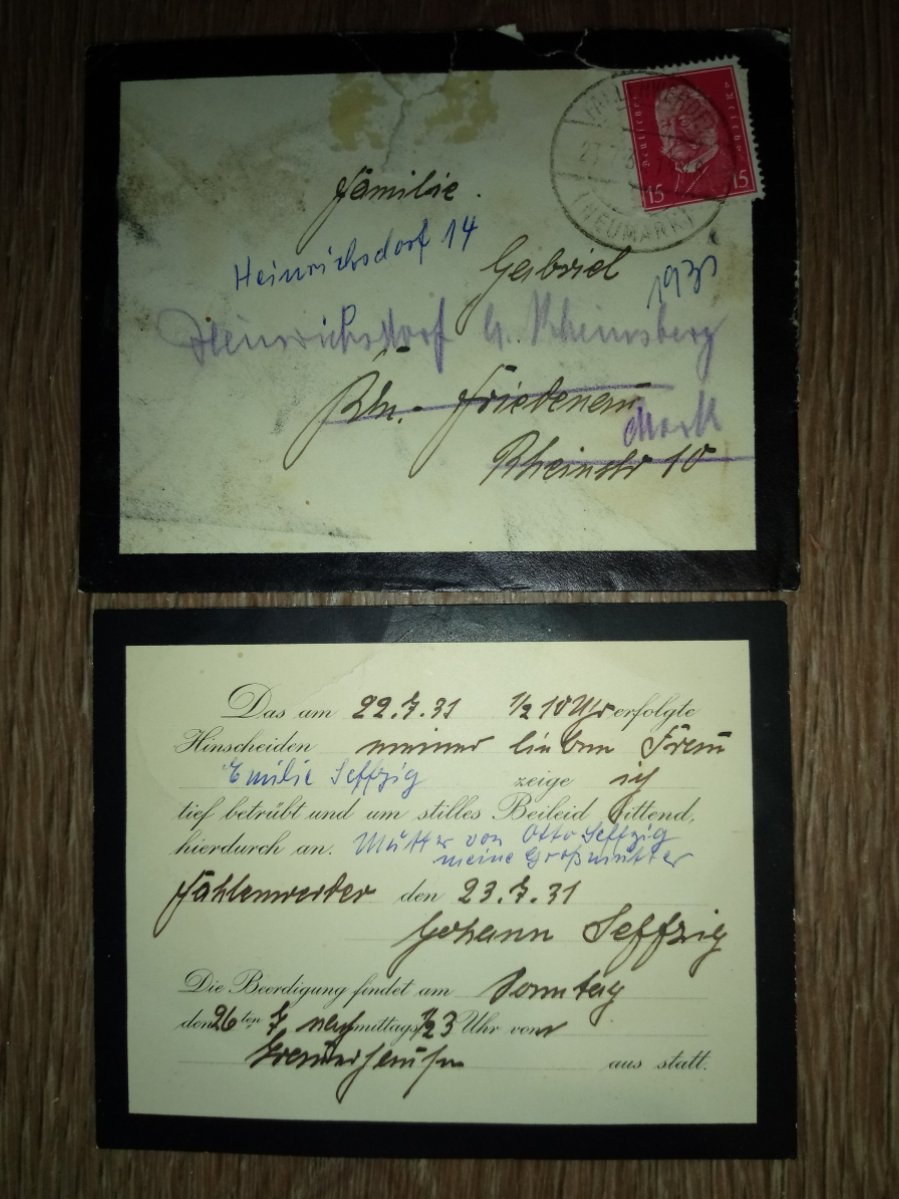 Deutsches Reich
15 15
(NEUMARK)
Familie.
Heinrichsdorf 14
Gabriel
1931
Heinrichsdorf b. Rheinsberg
Bln.- Friedenau
Mark
Rheinstr 10
Das am 22.7.31 1/2 10 Uhr erfolgte
Hinscheiden meiner lieben Frau
Emilie Seffzig zeige ich
tief betrübt und um stilles Beileid bittend,
hierdurch an. Mutter von Otto Seffzig
meine Großmutter
Fahlenwerder den 23.7.31
Johann Seffzig
Die Beerdigung findet am Sonntag
den 26ten 7 nachmittags 1/2 3 Uhr vom
Trauerhause aus statt.